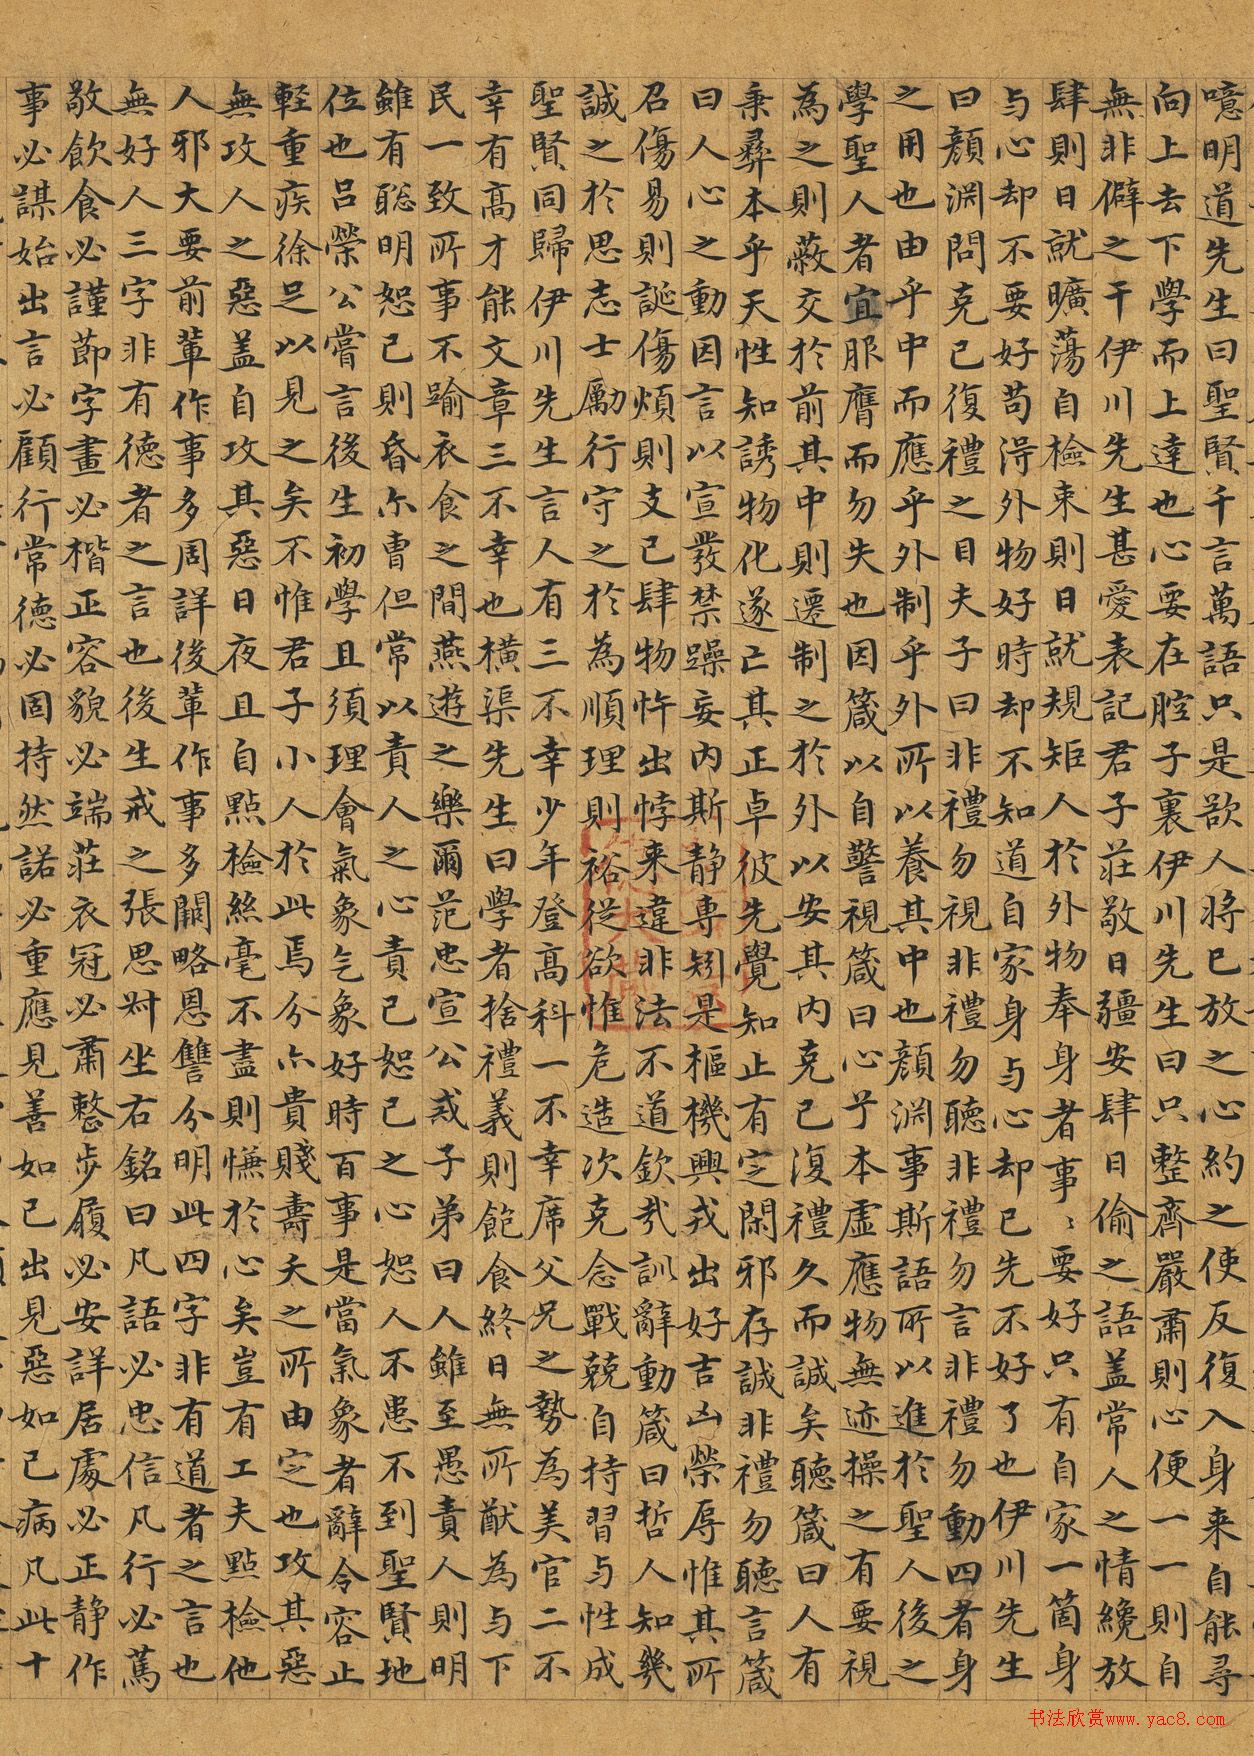 噫明道先生曰聖賢千言萬語只是欲人將已放之心約之使反復入身来自能尋
向上去下學而上達也心要在腔子裏伊川先生曰只整齊嚴肅則心便一一則自
無非僻之干伊川先生甚愛表記君子莊敬日彊安肆日偷之語盖常人之情纔放
肆則日就曠蕩自檢束則日就規矩人於外物奉身者事〻要好只有自家一箇身
与心却不要好苟淂外物好時却不知道自家身与心却已先不好了也伊川先生
曰顔渊問克己復禮之目夫子曰非禮勿視非禮勿聽非禮勿言非禮勿動四者身
之用也由乎中而應乎外制乎外所以養其中也顔渊事斯語所以進於聖人後之
學聖人者宜服膺而勿失也因箴以自警視箴曰心兮本虚應物無迹操之有要視
為之則蔽交於前其中則遷制之於外以安其内克己復禮久而誠矣聽箴曰人有
秉彞本乎天性知誘物化遂亡其正卓彼先覺知止有定閑邪存誠非禮勿聽言箴
曰人心之動因言以宣發禁躁妄内斯静專矧是樞機興戎出好吉凶榮辱惟其所
召傷易則誕傷煩則支己肆物忤出悖来違非法不道欽㢤訓辭動箴曰哲人知幾
誠之於思志士勵行守之於為順理則裕從欲惟危造次克念戰兢自持習与性成
聖賢同歸伊川先生言人有三不幸少年登高科一不幸席父兄之勢為美官二不
幸有高才能文章三不幸也横渠先生曰學者捨禮義則飽食終日無所猷為与下
民一致所事不踰衣食之間燕遊之樂爾范忠宣公戒子弟曰人雖至愚責人則明
雖有聡明恕己則昏尓曹但常以責人之心責己恕己之心恕人不患不到聖賢地
位也吕榮公嘗言後生初學且須理會氣象气象好時百事是當氣象者辭令容止
輕重疾徐足以見之矣不惟君子小人於此焉分亦貴賤壽夭之所由定也攻其惡
無攻人之惡盖自攻其惡日夜且自點檢絲毫不盡則慊於心矣豈有工夫點檢他
人邪大要前輩作事多周詳後輩作事多闕略恩讐分明此四字非有道者之言也
無好人三字非有德者之言也後生戒之張思叔坐右銘曰凡語必忠信凡行必篤
敬飲食必謹節字畫必楷正容貌必端莊衣冠必肅整步履必安詳居處必正静作
事必謀始出言必顧行常德必固持然諾必重應見善如己出見惡如己病凡此十
书法欣赏www.yac8.com